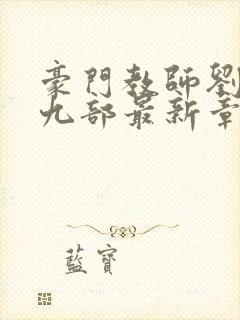 豪門教師劉
九部最新章
藍寶